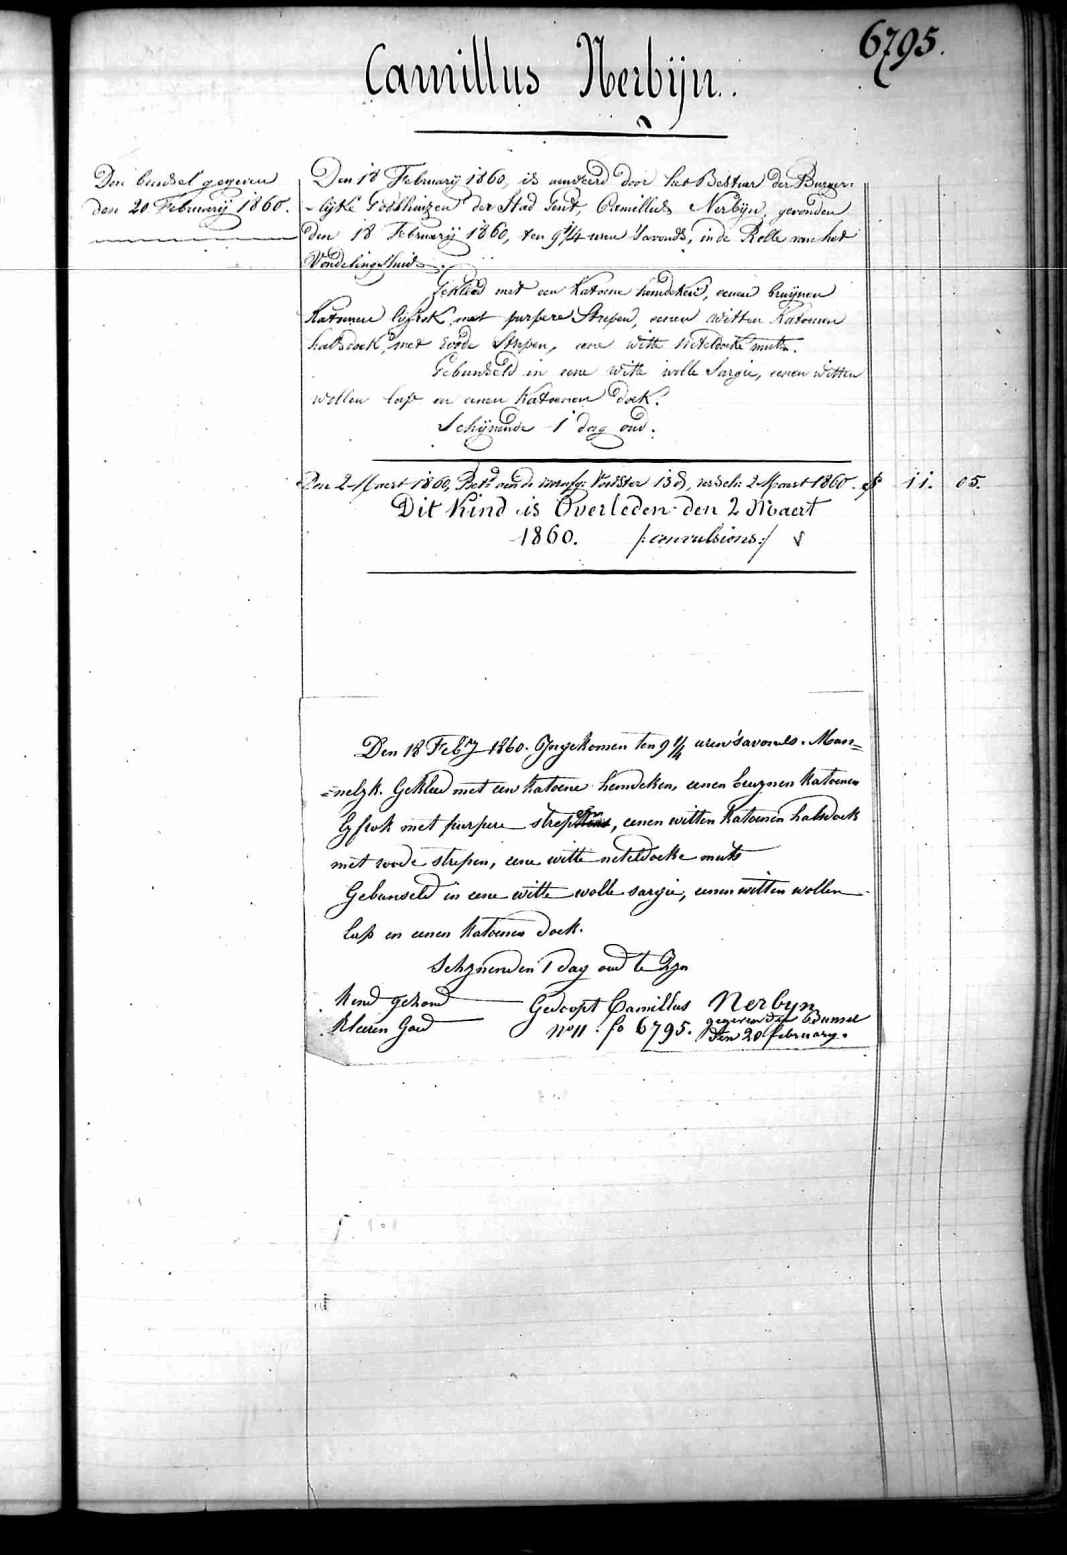 6795.
Camillus Nerbÿn.
Den bundsel gegeven
den 20 Februarÿ 1860.
Den 18 Februarÿ 1860, is aenveerd door het Bestuer der Burger-
-lijke Godshuizen der Stad Gent, Camillus Nerbÿn, gevonden
den 18 Februarÿ 1860, ten 9 1/4 uren 'savonds, in de Rolle van het
Vondelinghuis.
Gekleed met een Katoene hemdeken, eenen bruÿnen
Katoenen lÿfrok, met purpere Strepen, eenen witten Katoenen
halsdoek, met roode Strepen, eene witte neteldoeke muts.
Gebundseld in eene witte wolle Sargie, eenen witten
wollen lap en eenen Katoenen doek.
Schÿnende 1 dag oud.
Den 2 Maert 1860, aen de Voedster 13 d, 2 Maert 1860. f 11. 05.
Dit Kind is Overleden den 2 Maert
1860. /:convulsions:/
Den 18 Febry 1860. Ingekomen ten 9 1/4 uren 'savonds. Man=
=nelyk. Gekleed met een katoene hemdeken, eenen bruynen katoenen
lyfrok met purpere strepen, eenen witten katoenen halsdoek
met roode strepen, eene witte neteldoeke muts
Gebunseld in eene witte wolle sargie, eenen witten wollen
lap en eenen katoenen doek.
Schynenden 1 dag oud te Zyn
Kind gezond Gedoopt Camillus Nerbyn
Kleeren Goed No 11. fo 6795. gegeven den Bunsel
den 20 february.